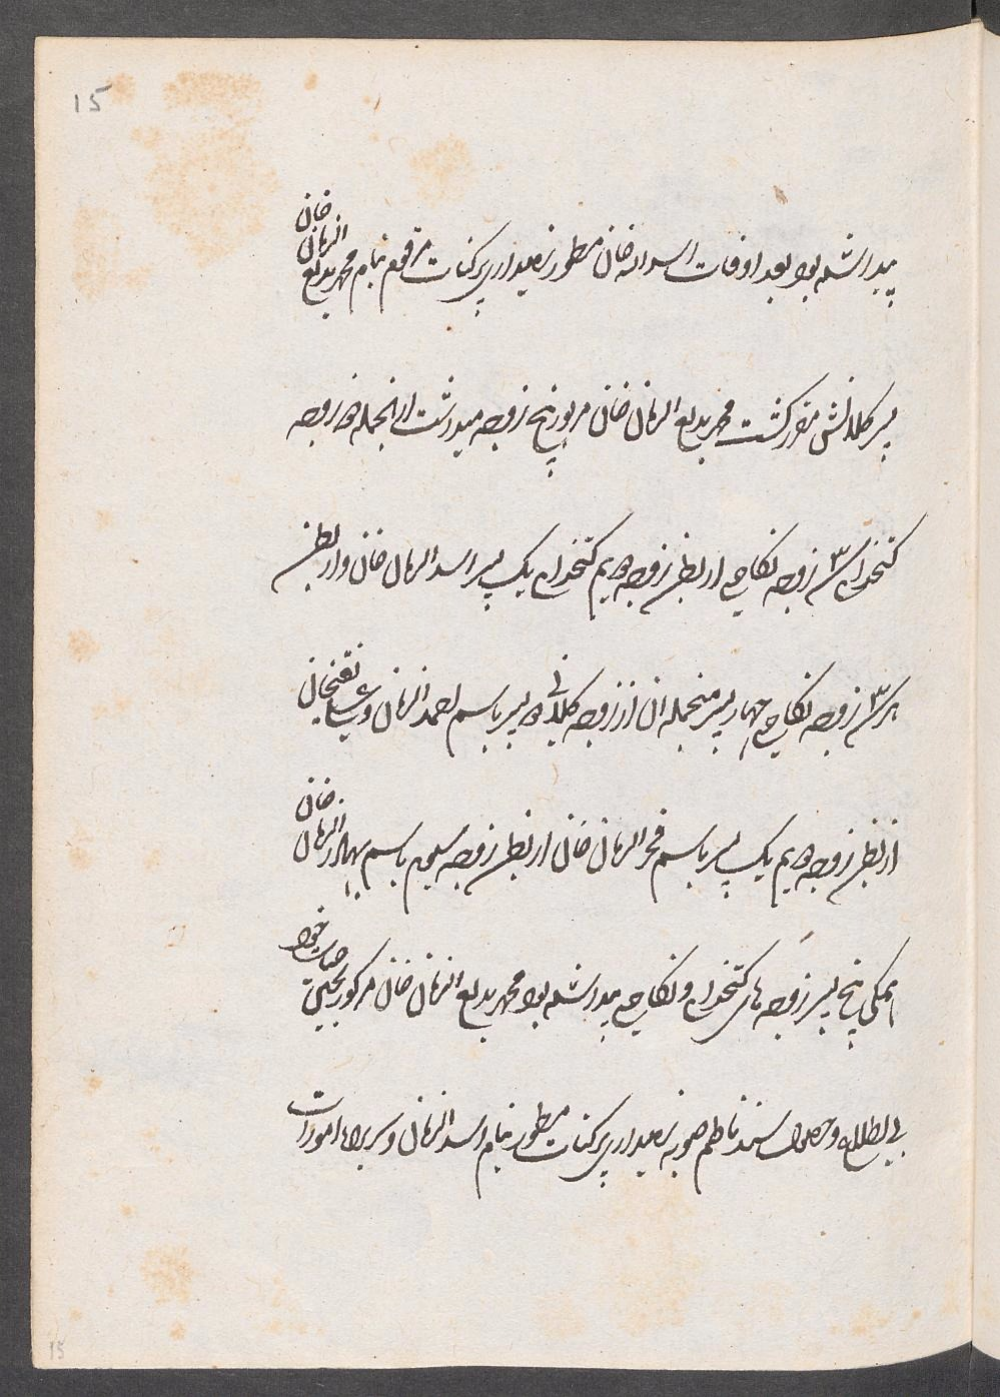 15
پیدا شده بود بعد از وفات اسد الله خان مسطور زمینداری پرکنات مرقوم بنام محمد بدیع الزمان خان
پسر کلانش مقرر کشت محمد بدیع الزمان خان مزبور پنج زوجه میداشت ازانجمله دو زوجه
کتخدای ۳ زوجه نکاحی از بطن زوجه دویم کتخدای یک پسر اسد الزمان خان و از بطن
هر ۳ زوجه نکاحی چهار پسر منجمله آن از زوجه کلانی دو پسر باسم احمد الزمان و
از بطن زوجه دویم یک پسر باسم فخر الزمان خان از بطن زوجه سیوم باسم بهادر الزمان خان
همکی پنج پسر زوجه های کتخدای و نکاحی پیدا شده بود محمد بدیع الزمان خان مذکور بحین حیات خود
بی اطلاع و حصول سند ناظم صوبه زمینداری پرکنات مسطور بنام اسد الزمان و سربراه امورات
15